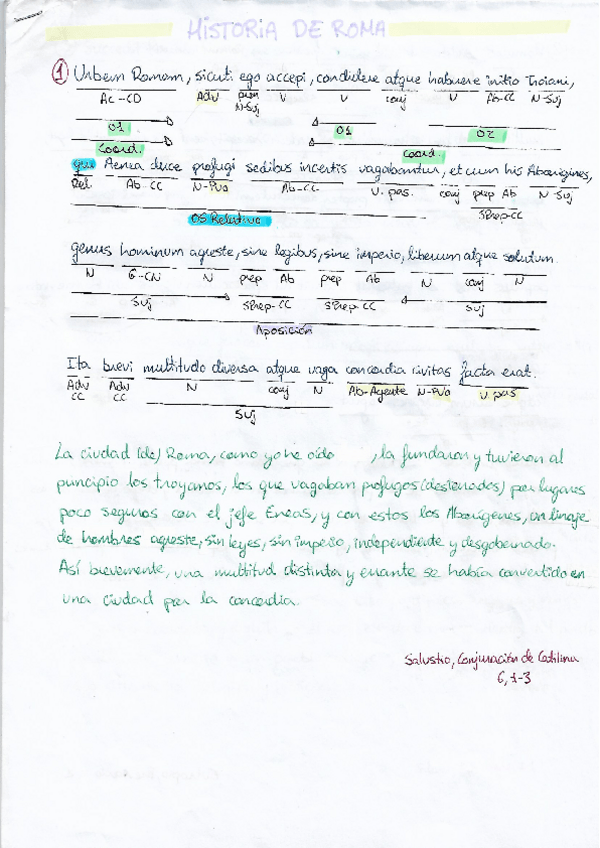 HISTORIA DE ROMA
1 Urbem Romam, sicuti ego accepi, condidere atque habuere initio Troiani,
Ac-CD Adv pron N-Suj V V conj V Ab-CC N-Suj
O1 O1 O2
Coord. Coord.
qui Aenea duce profugi sedibus incertis vagabantur, et cum his Aborigines,
Rel. Ab-CC N-Pvo Ab-CC V. pas. conj prep Ab N-Suj
OS Relativo SPrep-CC
genus hominum agreste, sine legibus, sine imperio, liberum atque solutum.
N G-CN N prep Ab prep Ab N conj N
Suj SPrep-CC SPrep-CC Suj
Aposición
Ita brevi multitudo diversa atque vaga concordia civitas facta erat.
Adv CC Adv CC N conj N Ab-Agente N-Pvo V. pas
Suj
La ciudad (de) Roma, como yo he oído , la fundaron y tuvieron al
principio los troyanos, los que vagaban prófugos (desterrados) por lugares
poco seguros con el jefe Eneas, y con estos los Aborígenes, un linaje
de hombres agreste, sin leyes, sin imperio, independiente y desgobernado.
Así brevemente, una multitud distinta y errante se había convertido en
una ciudad por la concordia.
Salustio, Conjuración de Catilina
6, 1-3